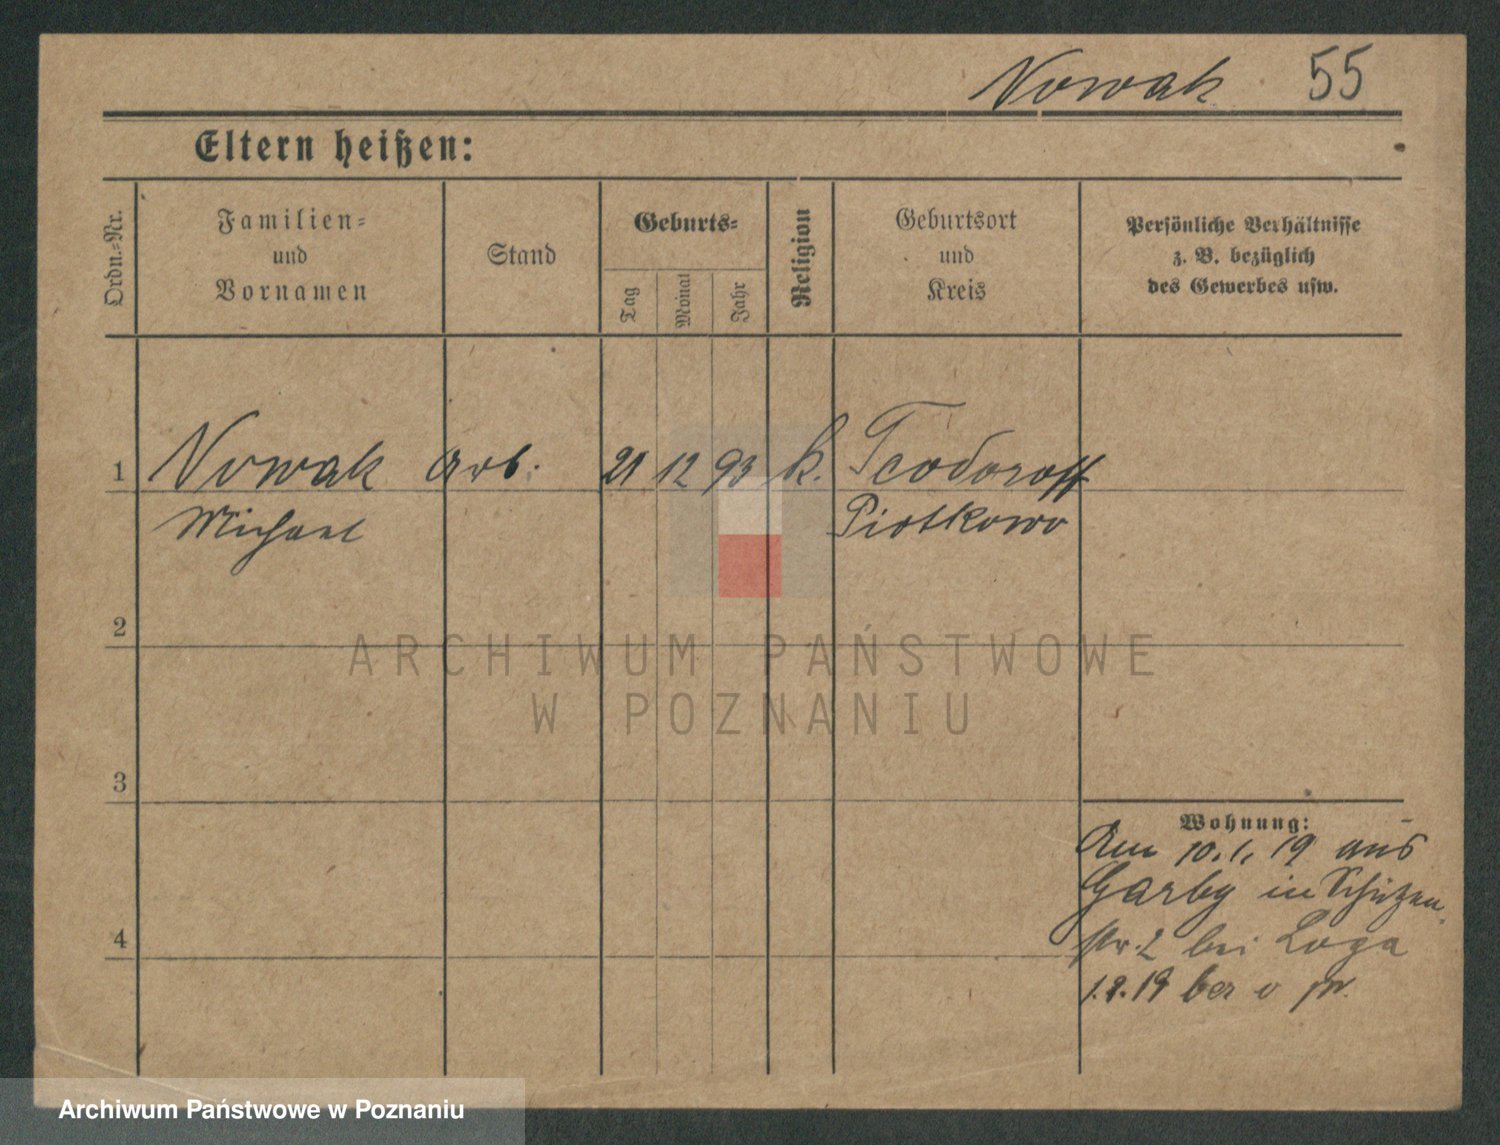 Nowak 55
Eltern heißen:
Ordn.=Nr.
Familien=
und
Vornamen
Stand
Geburts=
Tag
Monat
Jahr
Religion
Geburtsort
und
Kreis
Persönliche Verhältnisse
z. B. bezüglich
des Gewerbes usw.
1 Nowak Arb. 21 12 93 k. Teodoroff
Michael Piotkowo
2
ARCHIWUM PAŃSTWOWE
W POZNANIU
3
Wohnung:
Am 10.1.19 aus
Garby in Schützen
4 str. 2 bei Loga
1.2.19
Archiwum Państwowe w Poznaniu